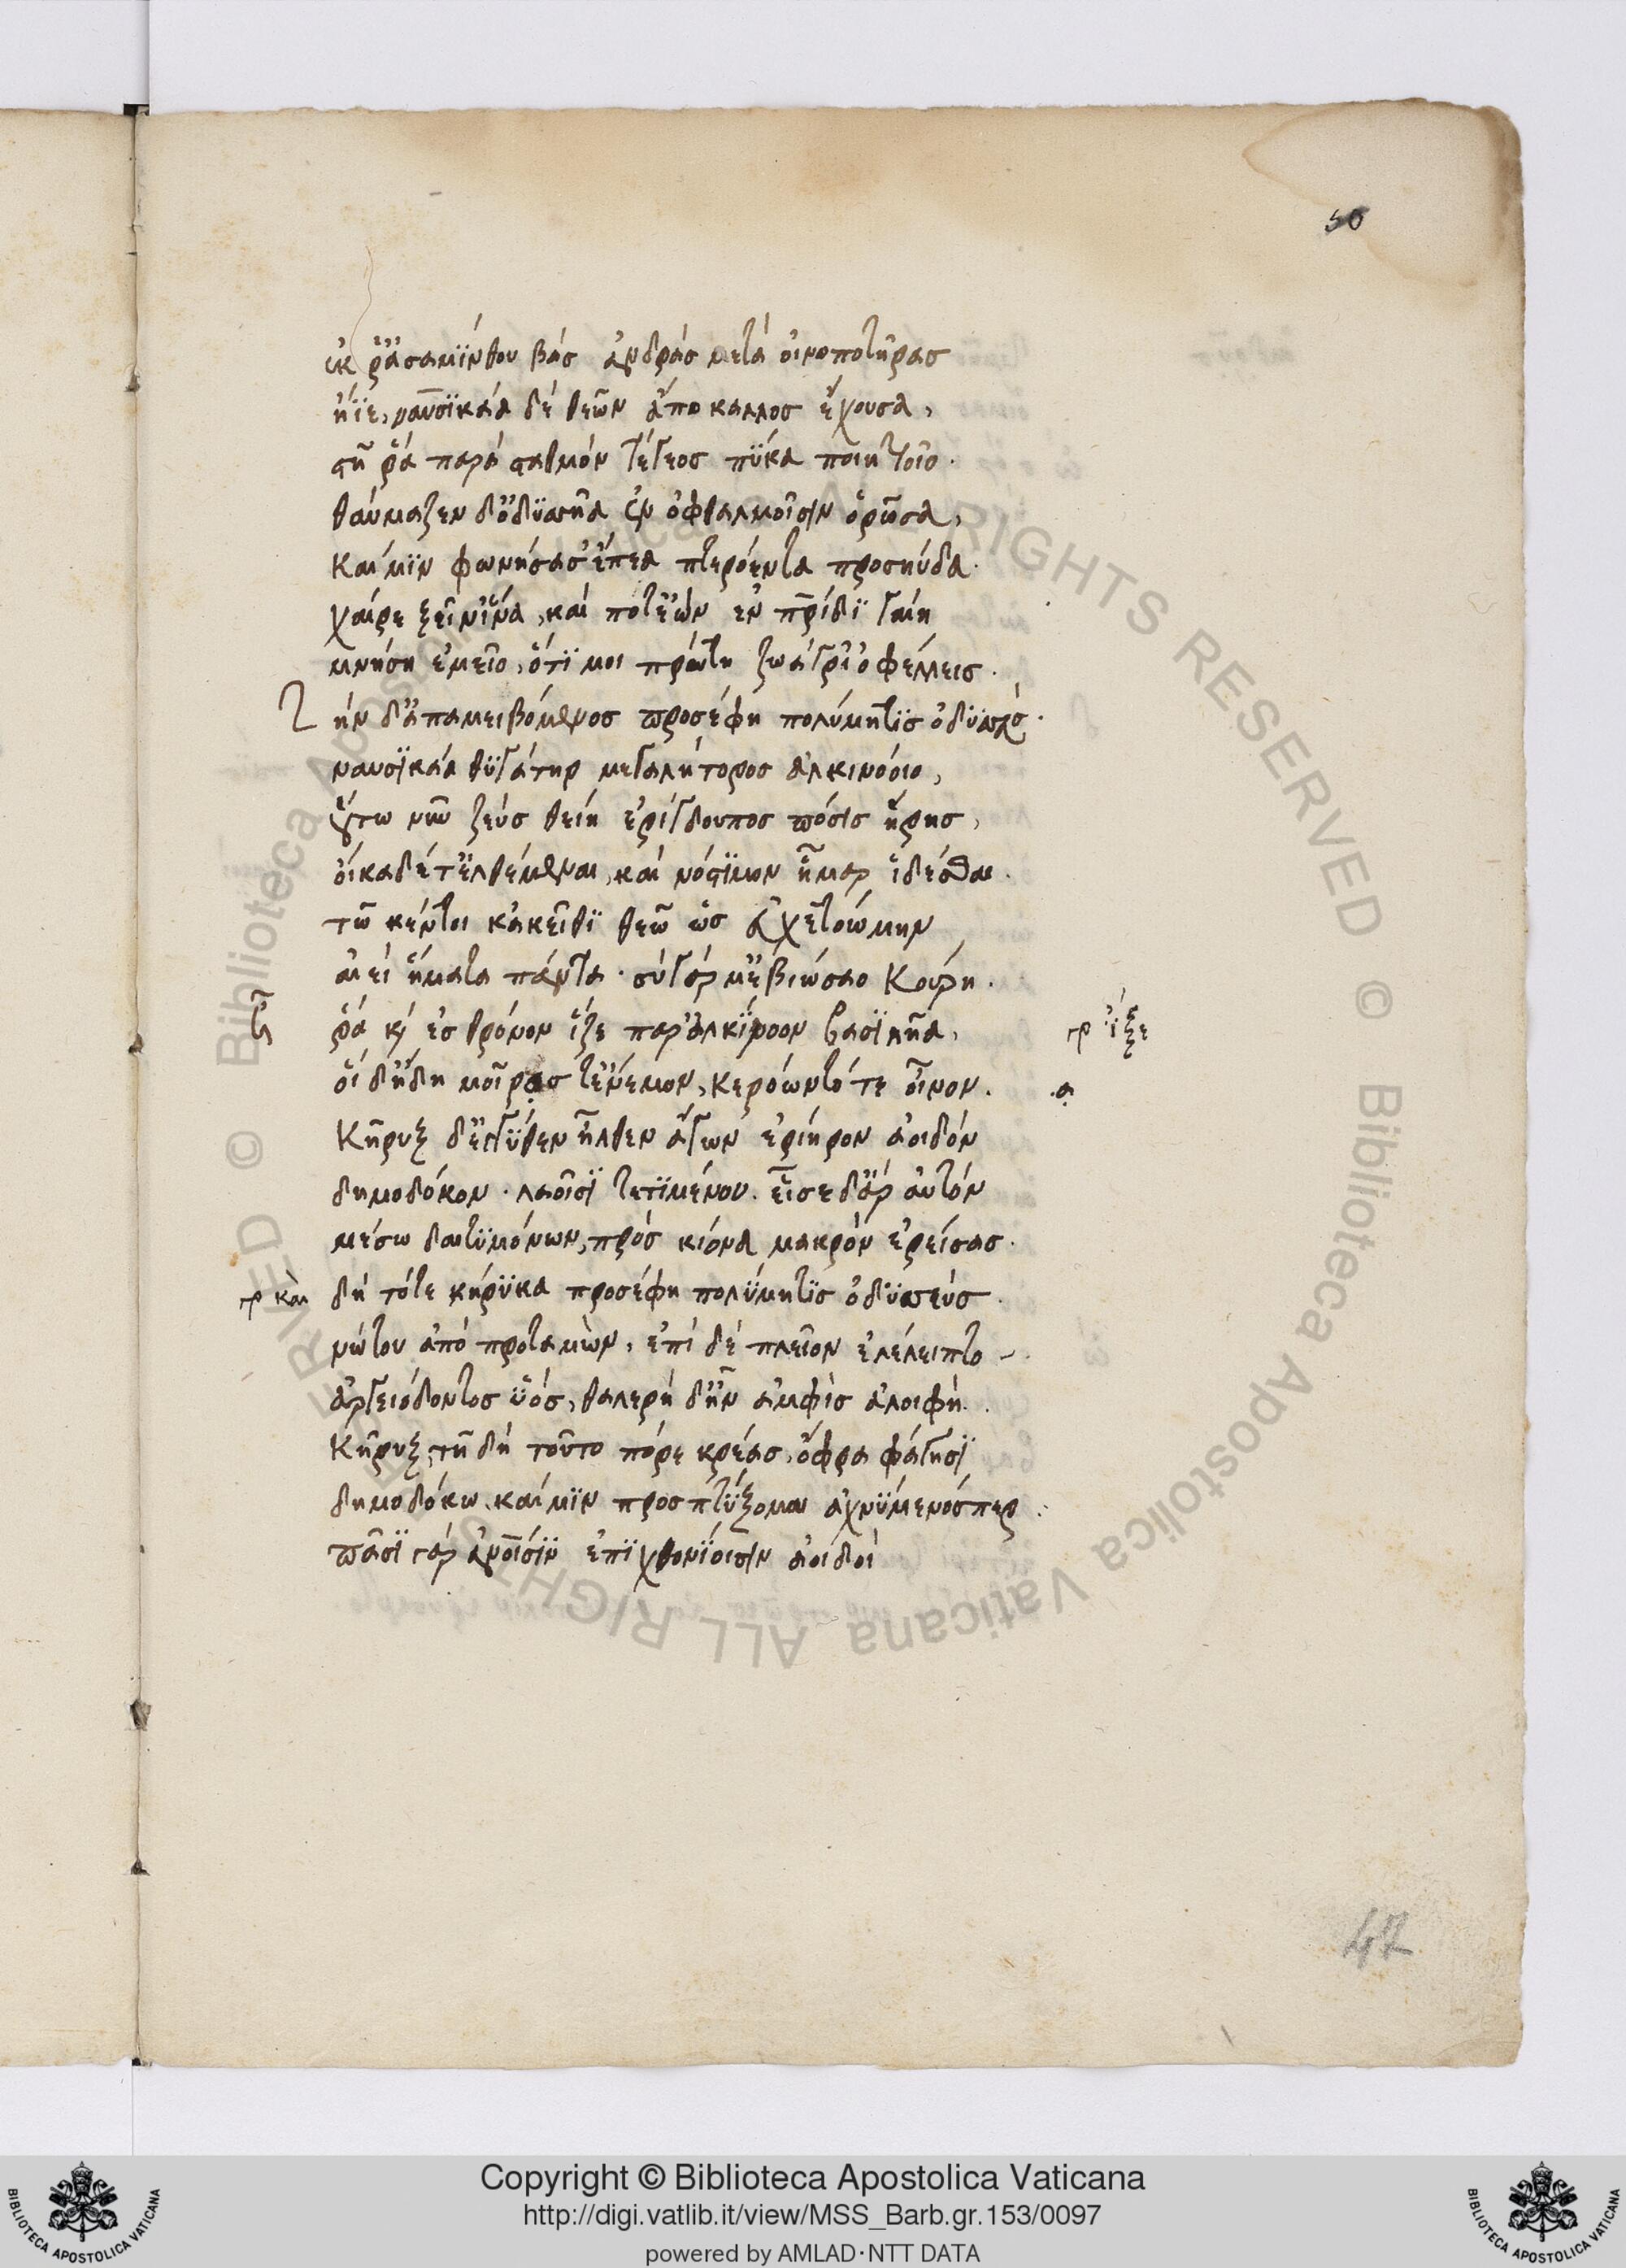 50
ἐκ ῥ' ἀσαμΐνθου βάς ἀνδράς μετά οἰνοποτῆρας
ἤϊε, ναυσϊκάα δέ θεῶν ἄπο καλλος ἔχουσα,
στῆ ῥά παρά σταθμόν τέγεος πϋκα ποιητοῖο.
θαύμαζεν δ' ὀδϋσσῆα ἐν ὀφθαλμοῖσϊν ὁρῶσα,
καί μϊν φωνήσασ' ἔπεα πτερόεντα προσηύδα.
χαῖρε ξεῖν' ἵνα, καί ποτ' ἐών ἐν πρίδϊ γαίη
μνήση ἐμεῖο, ὅτϊ μοι πρώτη ζωάγρι' ὀφέλλεις.
τ ήν δ' ἀπαμειβόμενος προσέφη πολύμητϊς ὀδϋσσεύς.
ναυσϊκάα θϋγάτηρ μεγαλήτορος ἀλκινόοιο,
οὕτω νῦν ζεύς θείη ἐρίγδουπος πόσις ἥρης,
οἴκαδέ τ' ἐλθέμεναι, καί νόστϊμον ἦμαρ ἰδέσθαι.
τῶ κέν τοι κἀκεῖθϊ θεῶ ὥς εὐχετοώμην
αἰεί ἤματα πάντα. σύ γάρ μ' ἐβιώσαο κούρη.
ῥά κ ἐς θρόνον ἷζε παρ' ἀλκίνοον βασϊλῆα,
γρ ἷξε
οἵ δ' ἤδη μοῖρας τ' ἔνεμον, κερόωντό τε οἶνον.
κῆρυξ δ' ἐγγϋθεν ἦλθεν ἄγων ἐρίηρον ἀοιδόν
δημοδόκον. λαοῖσϊ τετϊμένον. εἷσε δ' ἄρ αὐτόν
μέσω δαιτϋμόνων, πρός κίονα μακρόν ἐρείσας.
γρ καὶ δή τότε κήρϋκα προσέφη πολϋμητϊς ὀδϋσσεύς.
νώτου ἀπό προταμὼν, ἐπί δέ πλεῖον ἐλέλειπτο
ἀργειόδοντος ὑός, θαλερή δ' ἦν ἀμφὶς ἀλοιφή.
κῆρυξ, τῆ δή τοῦτο πόρε κρέας, ὄφρα φάγησϊ
δημοδόκω, καί μϊν προσπτϋξομαι ἀχνϋμενός περ.
πᾶσϊ γάρ ἀνοισϊν ἐπϊχθονϊοισϊν ἀοιδοί
47
Copyright © Biblioteca Apostolica Vaticana
http://digi.vatlib.it/view/MSS_Barb.gr.153/0097
powered by AMLAD·NTT DATA
BIBLIOTECA APOSTOLICA VATICANA
BIBLIOTECA APOSTOLICA VATICANA
© Biblioteca Apostolica Vaticana ALL RIGHTS RESERVED
© Biblioteca Apostolica Vaticana ALL RIGHTS RESERVED